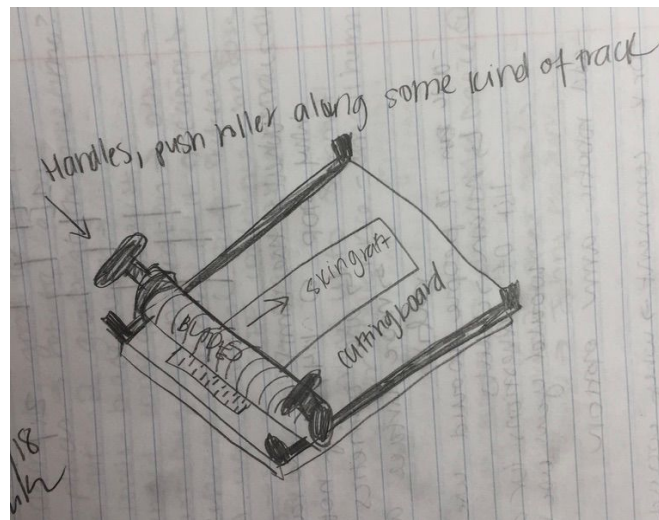 Handles, push roller along some kind of track
skin graft
BLADED
cutting board
/18